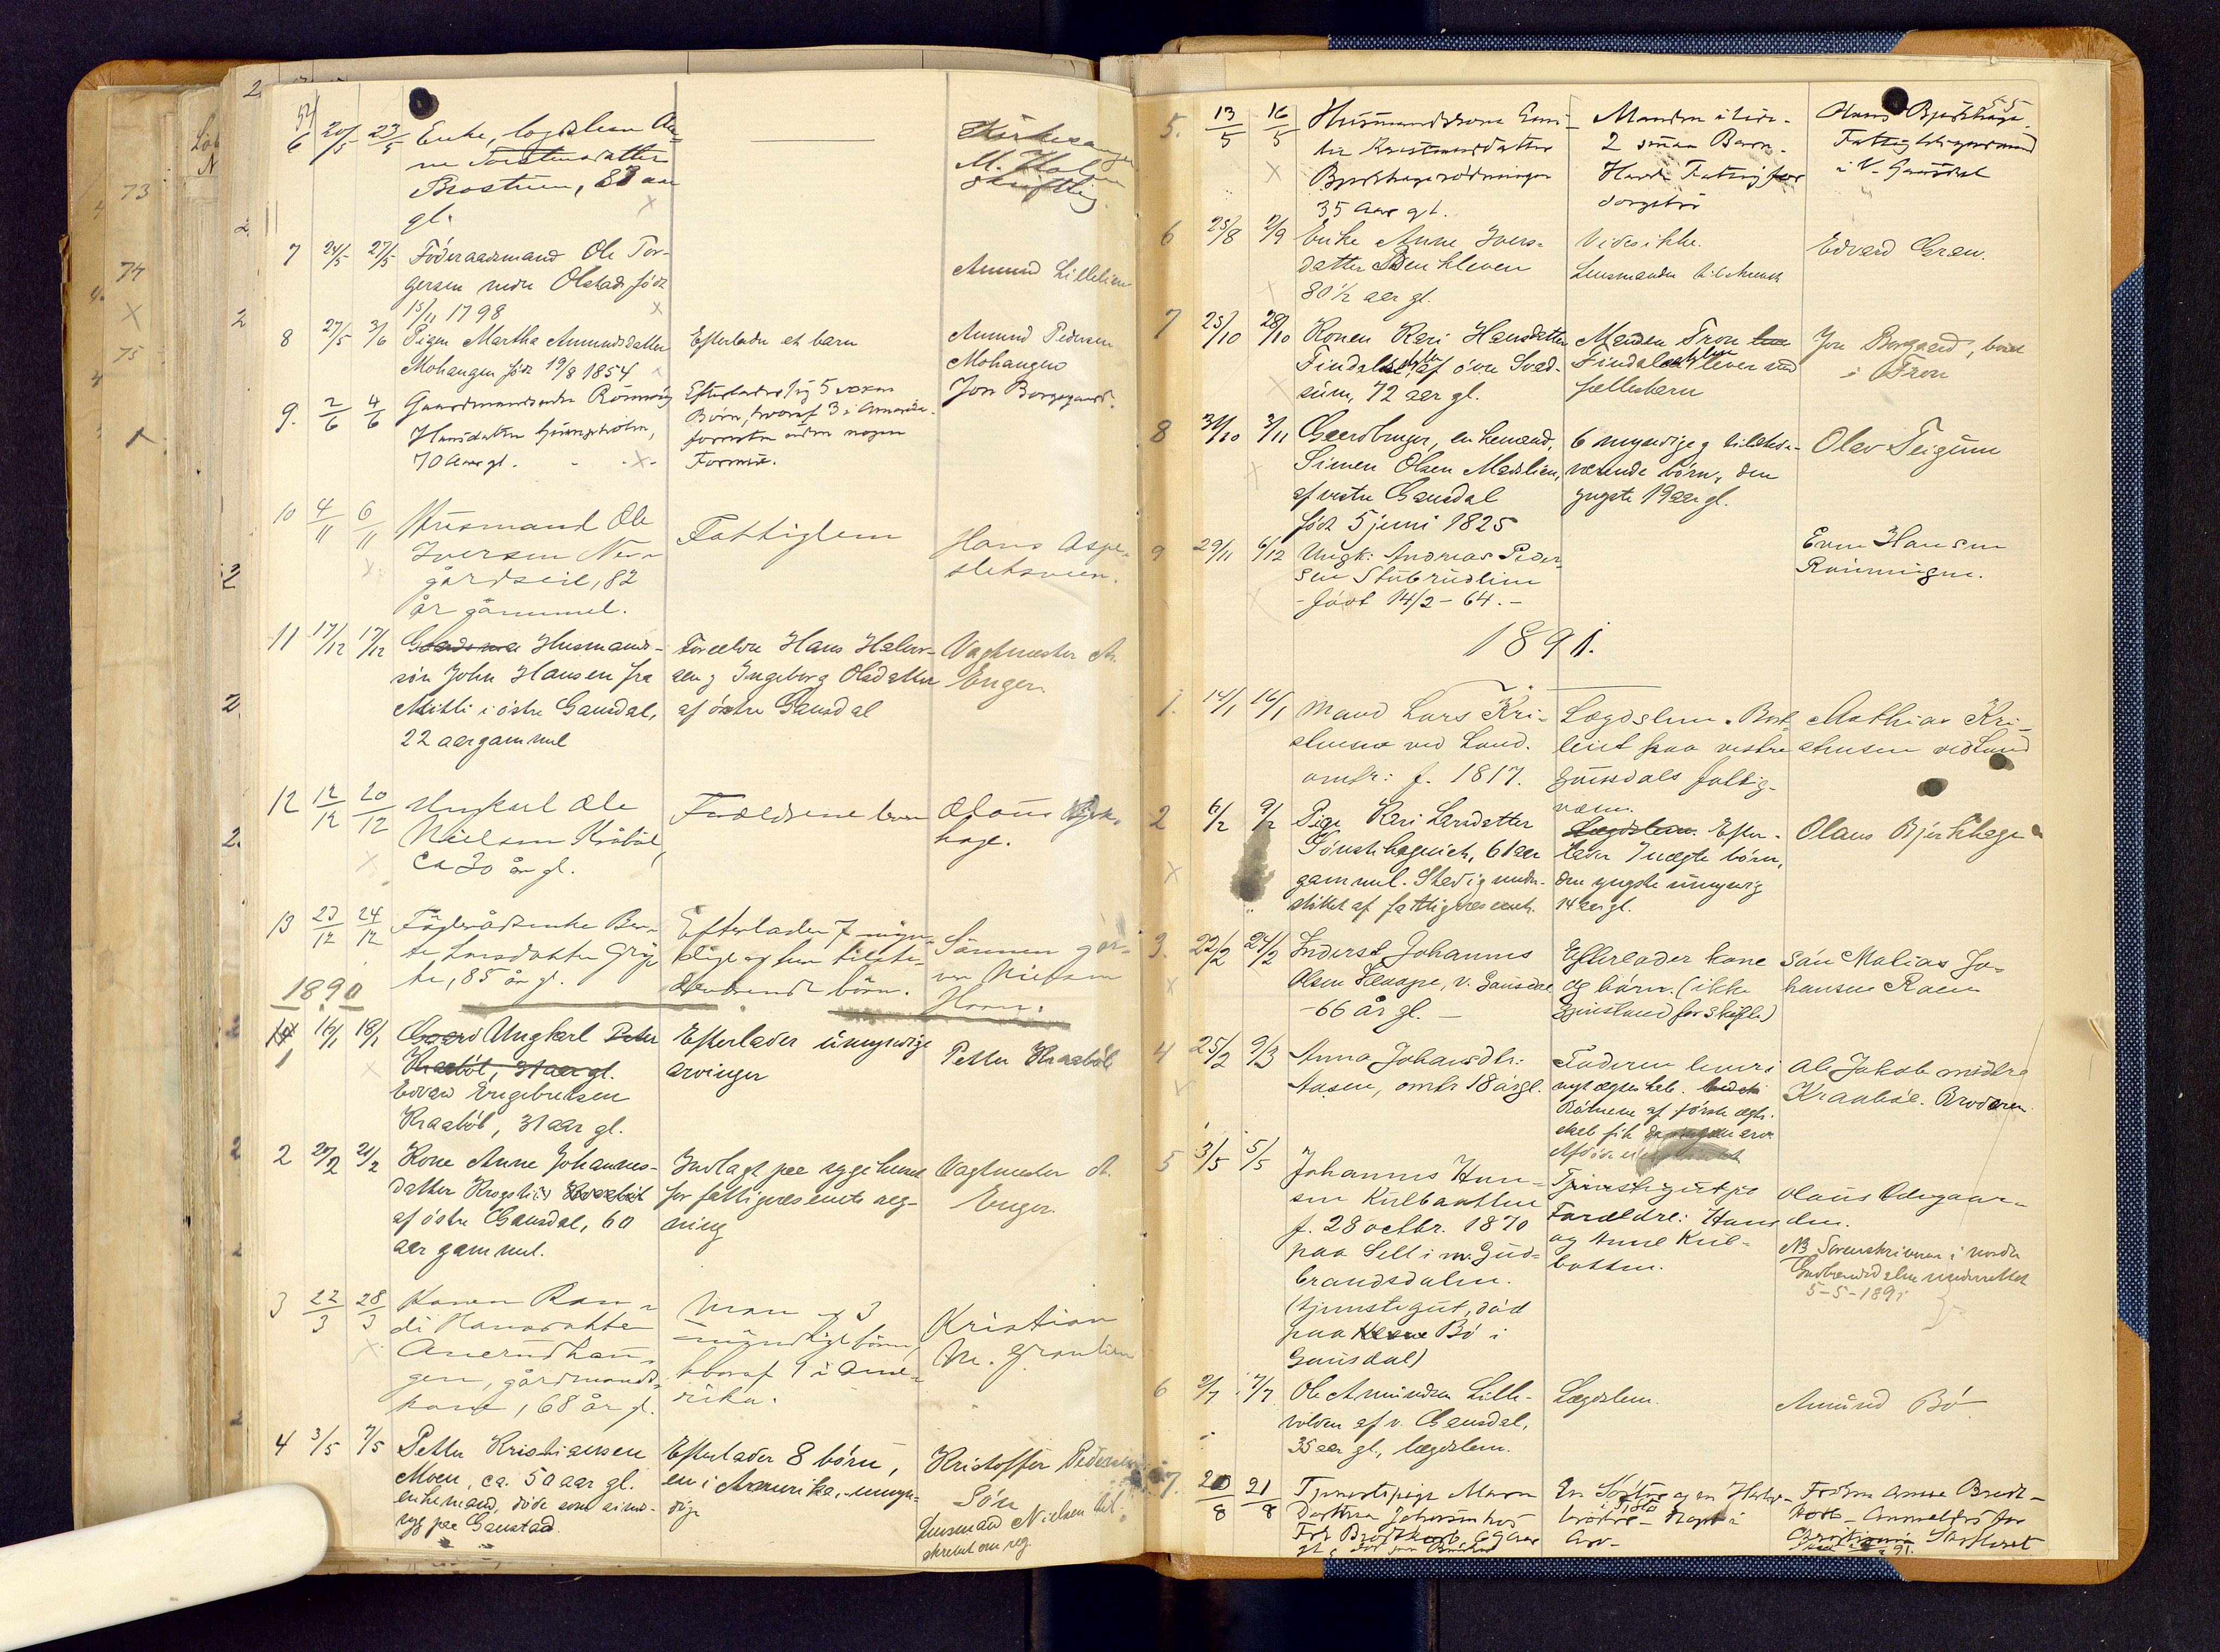 54
6 20/5 23/5 Enke, lægdslem An-
ne Torstensdatter
Brostuen, 83 aar
gl.
Kirkesanger
M. Holm
skriftlig.
7 24/5 27/5 Föderaadsmand Ole Tor-
gersen nedre Olstad född
15/11 1798
Amund Lillelien
8 27/5 3/6 Pigen Martha Amundsdatter
Mohaugen född 19/8 1854
Efterlader et barn
Amund Pedersen
Mohaugen
9. 2/6 4/6 Gaardmandsenke Rönnaug
Hansdatter
70 Aar gl.
Efterlader sig 5 voxne
Börn, hvoraf 3 i Amerika.
Formue.
Jon Borgegaard.
10 4/11 6/11 Husmand Ole
Iversen Ner-
gårdseie, 82
år gammel.
Fattiglem
Hans Aspe-
slethaugen.
11 17/12 17/12 Husmands-
sön John Hansen fra
i östre Gausdal,
22 aar gammel
Forældre Hans Halvor-
sen og Ingeborg Olsdatter
af östre Gausdal
Vagtmester A.
Enger.
12 12/12 20/12 Ungkarl Ole
Nielsen Kråböl,
ca 30 år gl.
Forældrene lever
Olaus Bjørk-
hage.
13 23/12 24/12 Föderådsenke Ber-
te Larsdatter Gry-
te, 85 år gl.
Efterlader 7 myn-
dige og her tilste-
deværende börn.
Sönnen går-
ver Nielsen
Horn.
1890
1 16/1 18/1 Gaard Ungkarl Peter
Kraaböl, 31 aar gl.
Edvard Engebretsen
Kraaböl, 31 aar gl.
Efterlader umyndige
arvinger
Petter Kraaböl
2 20/2 21/2 Kone Anne Johannes-
datter Krogsti
af östre Gausdal, 60
aar gammel.
Indlagt paa sygehuset
for fattigvæsenets reg-
ning
Vagtmester A.
Enger.
3 22/3 28/3 Konen Ran-
di Hansdatter
Amrudhau-
gen, gårdmands-
kone, 68 år gl.
Man og 3
myndige börn,
hvoraf 1 i Ame-
rika.
Kristian
M. Granlien
4 3/5 7/5 Petter Kristiansen
Moen, ca. 50 aar gl.
enkemand, döde som sinds-
syg paa Gaustad.
Efterlader 8 börn,
en i Amerika, umyn-
dige
Kristoffer Pedersen
Sön
Lensmand Nielsen til-
skrevet om reg.
55
5. 13/5 16/5 Husmandskone Emi-
lie Kristiansdatter
Bjørkhagerödningen
35 Aar gl.
Manden i live.
2 smaa Barn.
Havde Fattigfor-
sorgelse
Olaus Bjørkhage.
Fattigtilsynsmand
i V. Gausdal
6 25/8 2/9 Enke Anne Ivers-
datter Steenkleven
80½ aar gl.
Vides ikke.
Lensmanden
Edvard Gran.
7 25/10 28/10 Konen Kari Hansdatter
Findalen af övre Svad-
sum, 72 aar gl.
Manden Tron
Findal lever med
fællesbarn
Jon Borgaard, boende
i Fron
8 31/10 3/11 Gaardbruger, enkemand,
Simen Olsen Medlien,
af vestre Gausdal
född 5 juni 1825
6 myndige og tilstede-
værende börn, den
yngste 19 aar gl.
Olav Teigum
9 29/11 6/12 Ungk: Andreas Peder-
sen Stubrudlien
- Född 14/2 - 64. -
Even Hansen
Rönningen.
1891.
1. 14/1 16/1 Mand Lars Kri-
stensen ved Land.
omtr: f. 1817.
Lægdslem. Bort-
leiet paa vestre
Gausdals fattig-
væsen.
Mathias Kri-
stensen ved Land
2 6/2 9/2 Pige Kari Larsdatter
61 aar
gammel. Stedig under-
stöttet af fattigvæsenet.
Lægdslem. Efter-
lader 7 uægte börn,
den yngste umyndig
14 aar gl.
Olaus Bjørkhage
3. 22/2 24/2 Inderst Johannes
Olsen Kleaape, v. Gausdal
- 66 år gl. -
Efterlader kone
og börn. (ikke
gjenstand for skifte)
sön Matias Jo-
hansen Roen
4 25/2 9/3 Anna Johansdtr:
Aasen, omtr 18 år gl.
Faderen lever i
nyt ægteskab.
Börnene af förste ægte-
skab fik
Ole Jakob nedre
Kraaböl. Broderen.
5 3/5 5/5 Johannes Han-
sen Kulbatten
f. 28 octbr. 1870
paa Lell i n. Gud-
brandsdalen.
(tjenestegut, död
paa Bö i
Gausdal)
Tjenestegut
Forældre: Hans
og Anne Kul-
batten.
Olaus Ödegaar-
den.
NB Sorenskriveren i nordre
Gudbrandsdalen underrettet
5-5-1891
6 2/7 7/7 Ole Amundsen Lille-
volden af v. Gausdal,
35 aar gl., lægdslem.
Lægdslem.
Amund Bö
7. 20/8 21/8 Tjenestepige Maren
Dorthea
Fru Bredt
En Söster og en Halv-
broder
Arv-
Frøken Anna Bredt-
Anmeldes for
Christiania Skifteret